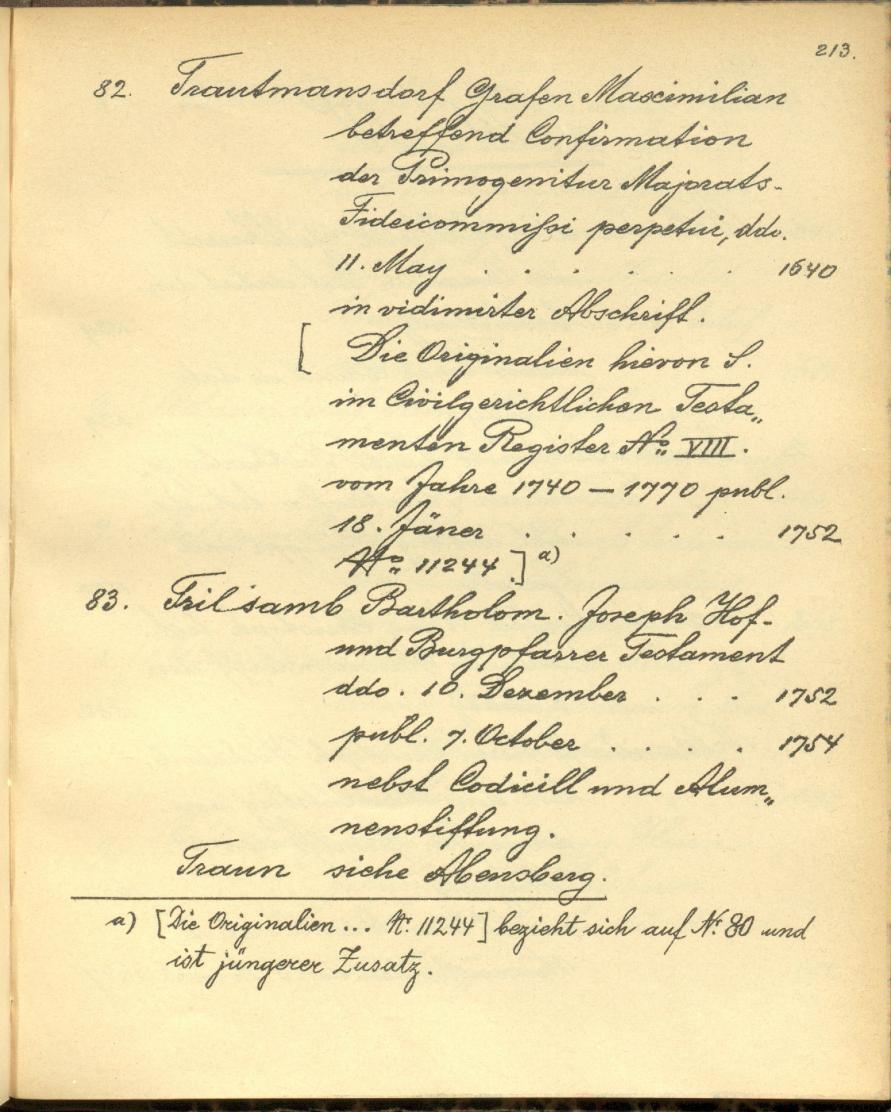 213.
82. Trautmansdorf Grafen Maximilian
betreffend Confirmation
der Primogenitur Majorats-
Fideicommißi perpetui, ddo.
11. May . . . . . 1640
in vidimirter Abschrift.
[ Die Originalien hievon S.
im Civilgerichtlichen Testa„
menten Register No. VIII.
vom Jahre 1740 – 1770 publ.
18. Jäner . . . . . 1752
No. 11244 ] a)
83. Trilsamb Bartholom. Joseph Hof-
und Burgpfarrer Testament
ddo. 10. Dezember . . . 1752
publ. 7. October . . . . 1754
nebst Codicill und Alum„
nenstiftung.
Traun siehe Abensberg.
a) [Die Originalien... Nr. 11244] bezieht sich auf Nr. 80 und
ist jüngerer Zusatz.